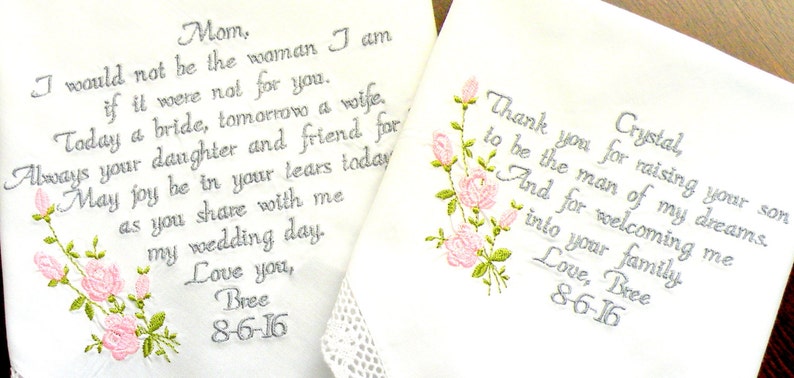 Mom,
I would not be the woman I am
if it were not for you.
Today a bride, tomorrow a wife.
Always your daughter and friend for
May joy be in your tears today
as you share with me
my wedding day.
Love you,
Bree
8-6-16
Crystal,
Thank you for raising your son
to be the man of my dreams.
And for welcoming me
into your family.
Love, Bree
8-6-16